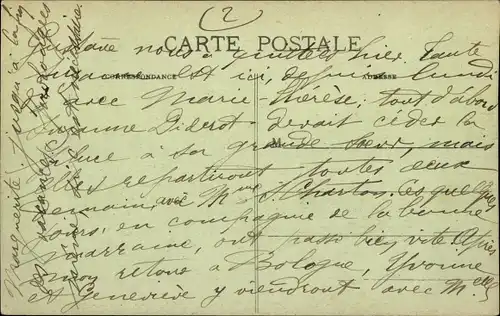 2
CARTE POSTALE
CORRESPONDANCE
ADRESSE
nous a quittés hier. Tante
est ici, depuis lundi
avec Marie-Thérèse; tout d'abord
Suzanne Diderot devait céder la
place à sa grande sœur, mais
elles repartiront toutes deux
demain, avec Mme Charton. Ces quelques
jours, en compagnie de la bonne
marraine, ont passé bien vite. Après
mon retour à Bologne, Yvonne
et Geneviève y viendront avec Melle
Marguerite jusqu'à la fin
des vacances